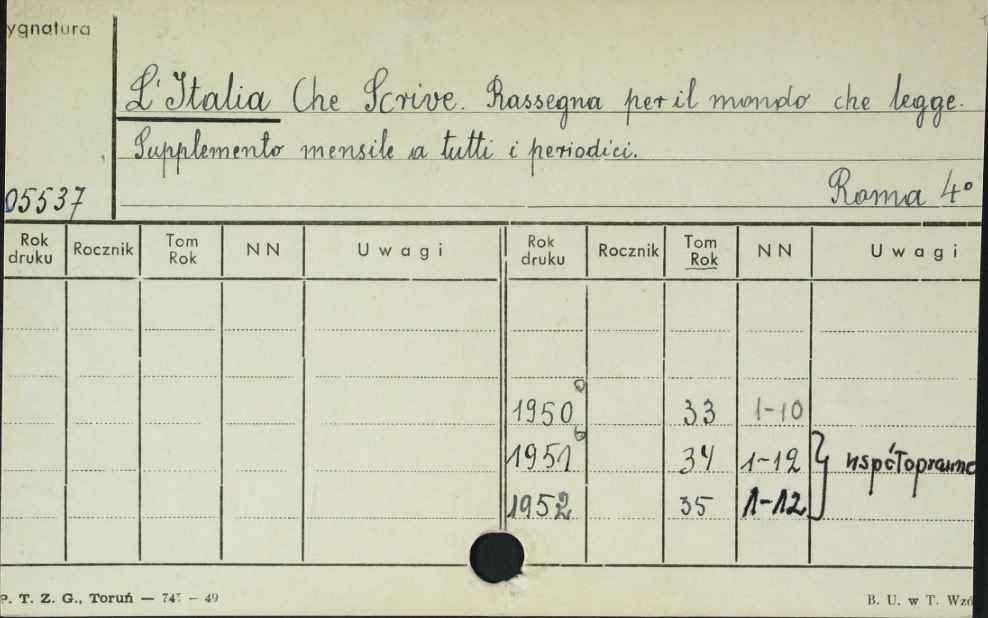 ygnatura
L'Italia Che Scrive. Rassegna per il mondo che legge.
Supplemento mensile a tutti i periodici.
05537
Roma 4°
Rok druku Rocznik Tom Rok NN Uwagi Rok druku Rocznik Tom Rok NN Uwagi
1950 33 1-10
1951 34 1-12 współoprawne
1952 35 1-12
P. T. Z. G., Toruń — 747 — 49
B. U. w T. Wzó